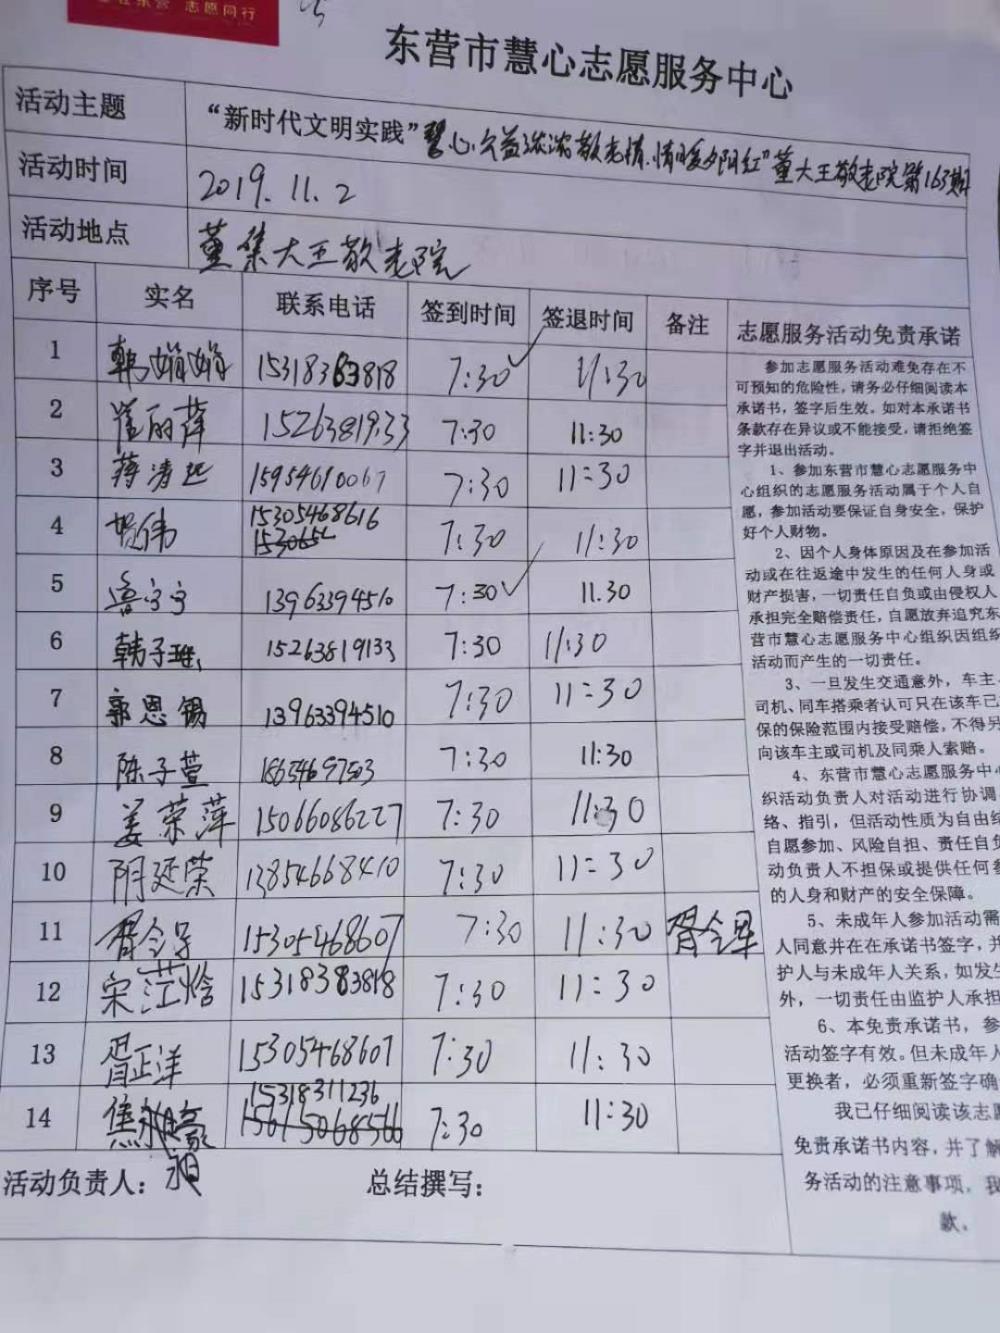 志愿同行
东营市慧心志愿服务中心
活动主题 “新时代文明实践”慧心公益浓浓敬老情.情暖夕阳红”董大王敬老院第163期
活动时间 2019.11.2
活动地点 董集大王敬老院
序号 实名 联系电话 签到时间 签退时间 备注 志愿服务活动免责承诺
1 韩娟娟 15318383818 7:30 11:30
2 崔丽萍 15263819133 7:30 11:30
3 蒋清 15954610067 7:30 11:30
4 伟 15305468616 7:30 11:30
5 鲁宁宁 13963394510 7:30 11.30
6 韩子 15263819133 7:30 11:30
7 郭恩锡 13963394510 7:30 11:30
8 陈子萱 18654697503 7:30 11:30
9 姜荣萍 15066086227 7:30 11:30
10 阴延荣 13854668410 7:30 11:30
11 胥令 15305468607 7:30 11:30 胥令
12 宋 15318383818 7:30 11:30
13 胥正洋 15305468607 7:30 11:30
14 焦豪 15318311236 7:30 11:30
活动负责人： 总结撰写：
参加志愿服务活动难免存在不
可预知的危险性，请务必仔细阅读本
承诺书，签字后生效。如对本承诺书
条款存在异议或不能接受，请拒绝签
字并退出活动。
1、参加东营市慧心志愿服务中
心组织的志愿服务活动属于个人自
愿，参加活动要保证自身安全，保护
好个人财物。
2、因个人身体原因及在参加活
动或在往返途中发生的任何人身或
财产损害，一切责任自负或由侵权人
承担完全赔偿责任，自愿放弃追究东
营市慧心志愿服务中心组织因组织
活动而产生的一切责任。
3、一旦发生交通意外，车主、
司机、同车搭乘者认可只在该车已
保的保险范围内接受赔偿，不得另
向该车主或司机及同乘人索赔。
4、东营市慧心志愿服务中心
织活动负责人对活动进行协调
络、指引，但活动性质为自由结
自愿参加、风险自担、责任自负
动负责人不担保或提供任何参
的人身和财产的安全保障。
5、未成年人参加活动需
人同意并在在承诺书签字，并
护人与未成年人关系，如发生
外，一切责任由监护人承担
6、本免责承诺书，参
活动签字有效。但未成年人
更换者，必须重新签字确
我已仔细阅读该志愿
免责承诺书内容，并了解
务活动的注意事项，我
款、